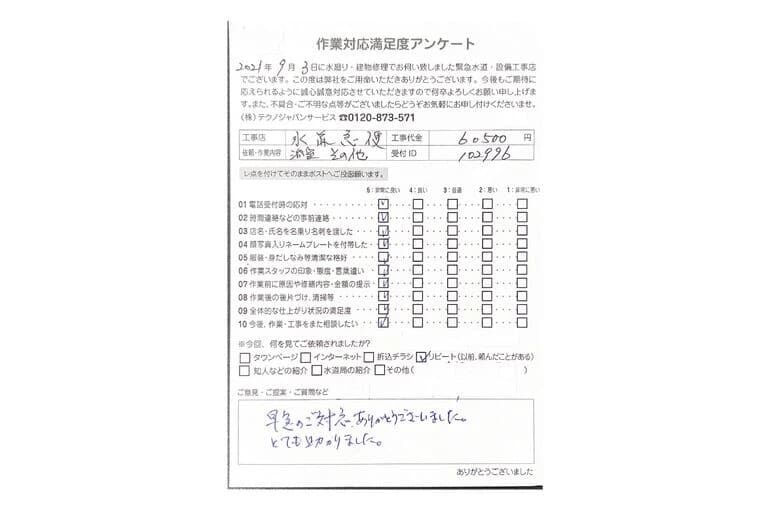 作業対応満足度アンケート
2021年9月3日に水廻り・建物修理でお伺い致しました緊急水道・設備工事店
でございます。この度は弊社をご用命いただきありがとうございます。今後もご期待に
応えられるように誠心誠意対応させていただきますので何卒よろしくお願い申し上げま
す。また、不具合・ご不明な点等がございましたらどうぞお気軽にお申し付けくださいませ。
(株)テクノジャパンサービス ☎0120-873-571
工事店 水 急便 工事代金 60500 円
依頼・作業内容 その他 受付ID 102996
レ点を付けてそのままポストへご投函願います。
5:非常に良い 4:良い 3:普通 2:悪い 1:非常に悪い
01 電話受付時の応対
02 時間連絡などの事前連絡
03 店名・氏名を名乗り名刺を渡した
04 顔写真入りネームプレートを付帯した
05 服装・身だしなみ等清潔な格好
06 作業スタッフの印象・態度・言葉遣い
07 作業前に原因や修繕内容・金額の提示
08 作業後の後片づけ、清掃等
09 全体的な仕上がり状況の満足度
10 今後、作業・工事をまた相談したい
※今回、何を見てご依頼されましたか?
□タウンページ □インターネット □折込チラシ ☑リピート(以前、頼んだことがある)
□知人などの紹介 □水道局の紹介 □その他( )
ご意見・ご提案・ご質問など
早急のご対応、ありがとうございました。
とても助かりました。
ありがとうございました